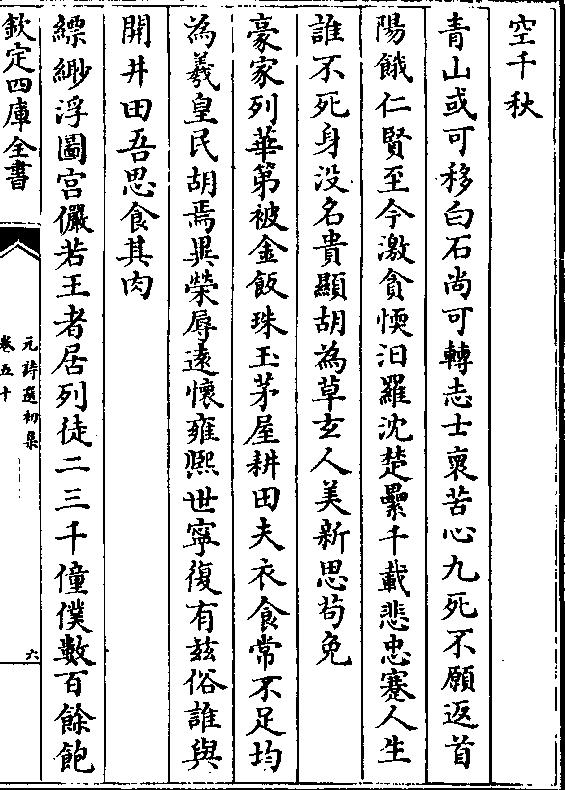 空千秋
青山或可移白石尚可轉志士裹苦心九死不願返首
陽餓仁賢至今激貪愞汨羅沈楚纍千載悲忠蹇人生
誰不死身没名貴顯胡為草玄人美新思苟免
豪家列華第被金飯珠玉茅屋耕田夫衣食常不足均
為羲皇民胡焉異榮辱逺懷雍熙世寧復有兹俗誰與
開井田吾思食其肉
縹緲浮圖宫儼若王者居列徒二三千僮僕數百餘飽
欽定四庫全書
元詩選初集
卷五十
六